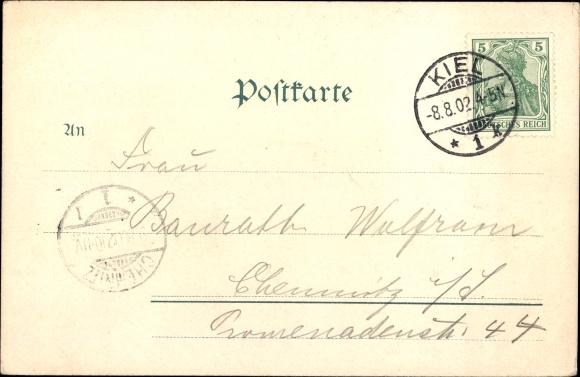 5 5
DEUTSCHES REICH
KIEL
-8.8.02. 4-5N.
* 1 k
Postkarte
An
Frau
Baurath Wolfram
Chemnitz i/S.
Promenadenstr. 44
CHEMNITZ
* 1